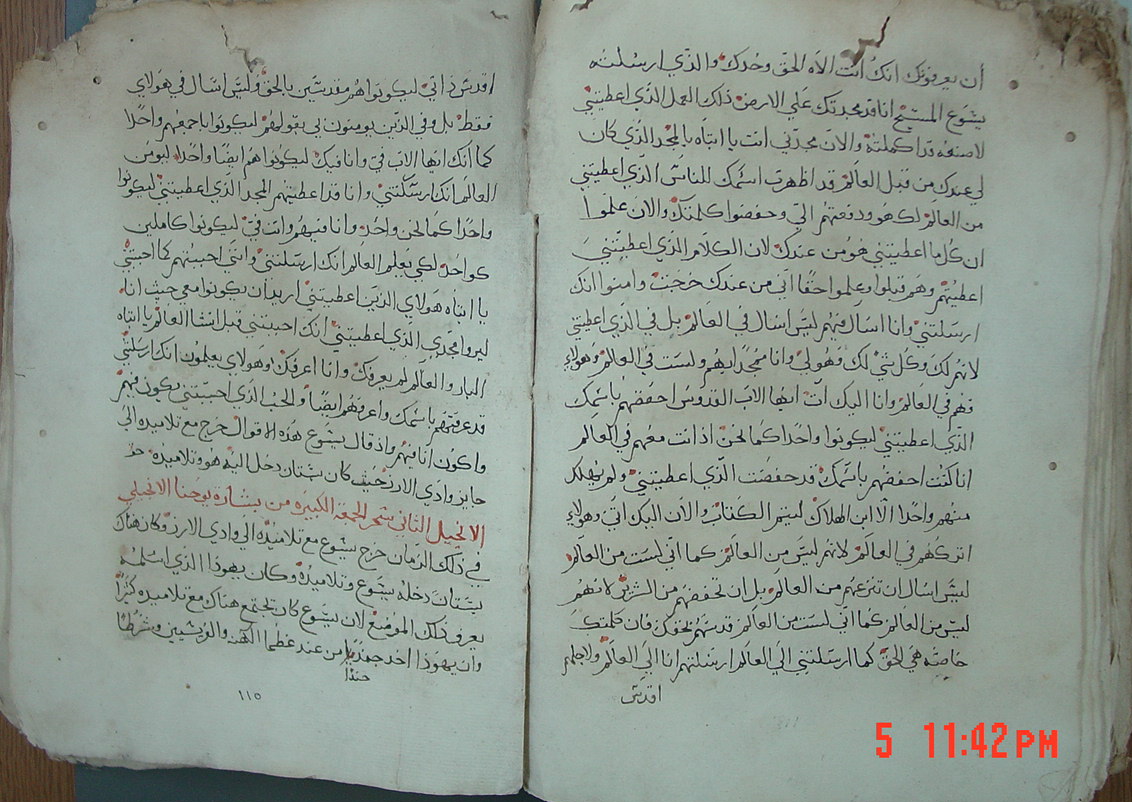 أن يعرفونك انك أنت الاه الحق وحدك والذي ارسلته
يشوع المسيح انا قد مجدتك علي الارض ذلك العمل الذي اعطيتني
لاصنعه قد اكملته والان مجدني انت يا ابتاه بالمجد الذي كان
لي عندك من قبل العالم قد اظهرت اسمك للناس الذي اعطيتني
من العالم لك هو ودفعتهم الي وحفضوا كلمتك والان علموا
ان كل ما اعطيتني هو من عندك لان الكلام الذي اعطيتني
اعطيتهم وهم قبلوا وعلموا حقا اني من عندك خرجت وامنوا انك
ارسلتني وانا اسال فيهم ليس اسال في العالم بل في الذي اعطيتني
لانهم لك وكل شي لك فهو لي وانا ممجد ابهم ولست في العالم وهولاء
فهم في العالم وانا اليك آت ايها الاب القدوس احفضهم باسمك
الذي اعطيتني ليكونوا واحدا كما نحن اذ انت معهم في العالم
انا كنت احفضهم باسمك قد حفضت الذي اعطيتني ولم يهلك
منهم واحدا الا ابن الهلاك ليتم الكتاب والان اليك اتي وهولاء
اتركهم في العالم لانهم ليس من العالم كما اني لست من العالم
ليس اسال ان تنزعهم من العالم بل ان تحفضهم من الشرير لانهم
ليس من العالم كما اني لست من العالم قدسهم بحقك فان كلمتك
خاصه هي الحق كما ارسلتني الي العالم ارسلتهم انا الي العالم ولاجلهم
اقدس
اقدس ذاتي ليكونوا هم مقدسين بالحق وليس اسال في هولاي
فقط بل وفي الذين يومنون بي بقولهم ليكونوا باجمعهم واحدا
كما انك ايها الاب في وانا فيك ليكونوا هم ايضا واحدا ليومن
العالم انك ارسلتني وانا قد اعطيتهم المجد الذي اعطيتني ليكونوا
واحدا كما نحن واحد وانا فيهم وانت في ليكونوا كاملين
كواحد لكي يعلم العالم انك ارسلتني وانني احببتهم كما احببتني
يا ابتاه هولاي الذين اعطيتني اريد ان يكونوا معي حيث انا
ليروا مجدي الذي اعطيتني انك احببتني قبل انشا العالم يا ابتاه
البار والعالم لم يعرفك وانا اعرفك وهولاي يعلمون انك ارسلتني
قد عرفتهم باسمك واعرفهم ايضا والحب الذي احببتني يكون فيهم
واكون انا فيهم واذ قال يشوع هذه الاقوال خرج مع تلاميذه الي
حايز وادي الارز حيث كان بستان دخل اليه هو وتلاميذه
الانجيل الثاني سحر الجمعة الكبيره من بشارة يوحنا الانجيلي
في ذلك الزمان خرج يشوع مع تلاميذه الي وادي الارز وكان هناك
بستان دخله يشوع وتلاميذه وكان يهوذا الذي اسلمه
يعرف ذلك الموضع لان يشوع كان يجتمع هناك مع تلاميذه كثيرا
وان يهوذا اخد من عند عظما الكهن والفريسيين وشرطا
جندا
١١٥
5 11:42 PM